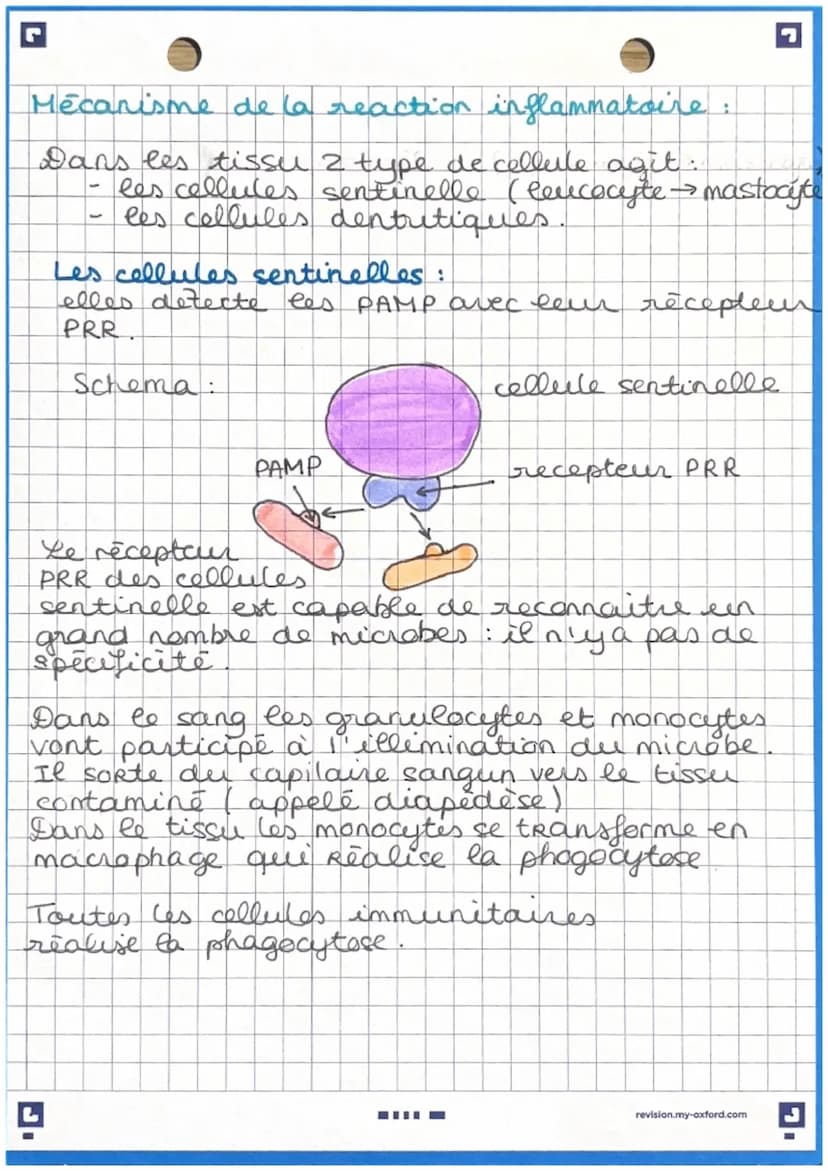 Mécanisme de la reaction inflammatoire :
Dans les tissu 2 type de cellule agit :
- les cellules sentinelle (leucocyte → mastocyte
- les cellules dentritiques.
Les cellules sentinelles :
elles détecte les PAMP avec leur récepteur
PRR.
Schema :
cellule sentinelle
PAMP
recepteur PRR
Le récepteur
PRR des cellules
sentinelle est capable de reconnaitre un
grand nombre de microbes : il n'y a pas de
spécificité.
Dans le sang les granulocytes et monocytes
vont participé à l'illimination du microbe.
Il sorte du capilaire sangun vers le tissu
contaminé (appelé diapédèse)
Dans le tissu les monocytes se transforme en
macrophage qui réalise la phagocytose
Toutes les cellules immunitaires
réalise la phagocytose.
revision.my-oxford.com